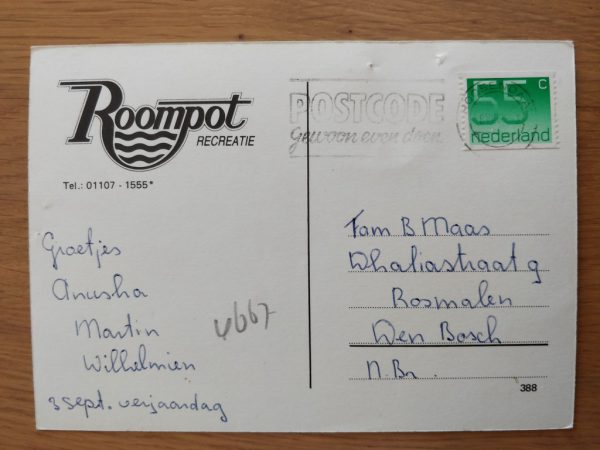 Roompot
RECREATIE
Tel.: 01107 - 1555*
POSTCODE
Gewoon even doen
55 c
nederland
Groetjes
Anusha
Martin
Wilhelmien
3 sept. verjaardag
4667
Fam B Maas
Whaliastraat 9
Rosmalen
Den Bosch
N.Br.
388